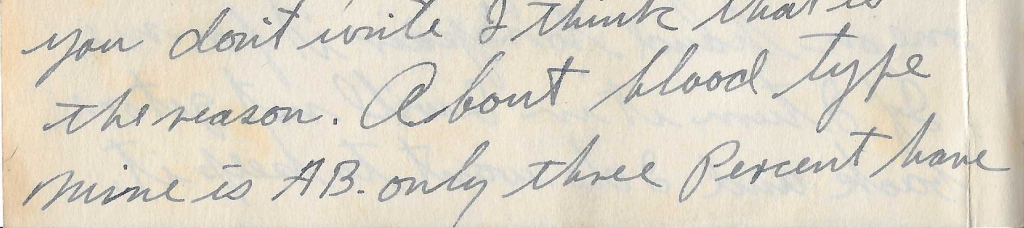 you don't write I think that is
the reason. About blood type
mine is AB. only three Percent have